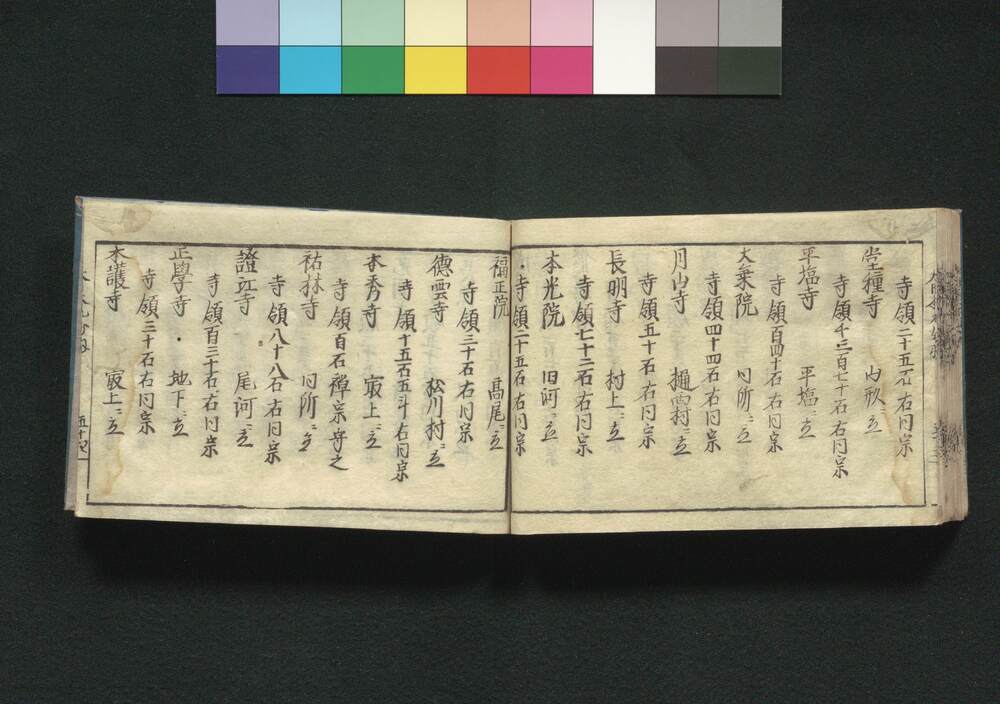 寺領二十五石右同宗
寺 山形ニ立
寺領千三百七十石右同宗
平塩寺 平塩ニ立
寺領百四十石右同宗
大乗院 同所ニ立
寺領四十四石右同宗
月山寺 樋西村ニ立
寺領五十石右同宗
長明寺 村上ニ立
寺領七十二石右同宗
本光院 旧河ニ立
寺領二十五石右同宗
福正院 高尾ニ立
寺領三十石右同宗
徳雲寺 松川村ニ立
寺領十五石五斗右同宗
本秀寺 㝡上ニ立
寺領百石禅宗守之
祐林寺 同所ニ立
寺領八十八石右同宗
證江寺 尾河ニ立
寺領百三十石右同宗
正學寺 地下ニ立
寺領三十石右同宗
本護寺 㝡上ニ立
五十四